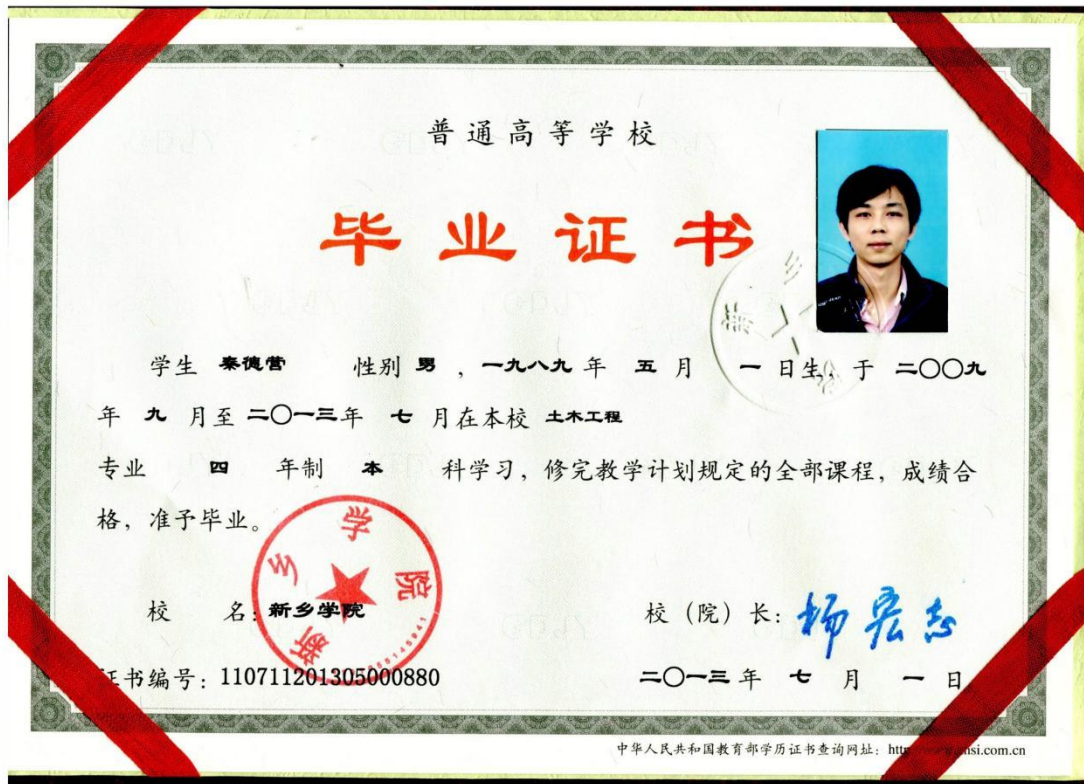 普通高等学校
毕业证书
学生 秦德营 性别 男 ，一九八九 年 五 月 一 日生，于 二〇〇九
年 九 月至 二〇一三年 七 月在本校 土木工程
专业 四 年制 本 科学习，修完教学计划规定的全部课程，成绩合
格，准予毕业。
新乡学院
校 名：新乡学院 校（院）长：杨宏志
证书编号：110711201305000880 二〇一三 年 七 月 一 日
中华人民共和国教育部学历证书查询网址：http
si.com.cn